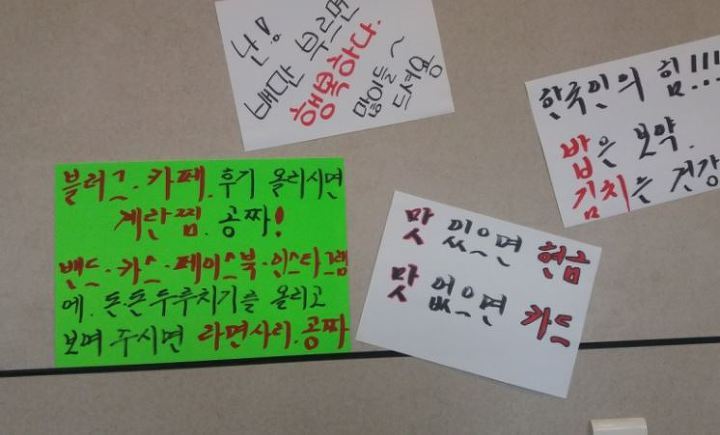 한국인의 힘!!!
밥은 보약.
김치는 건강
블러그. 카페. 후기 올리시면
계란찜. 공짜!
밴드·카스·페이스북·인스타그램
에. 돈돈두루치기를 올리고
보여 주시면 라면사리.공짜
맛 있으면 현금
맛 없으면 카드